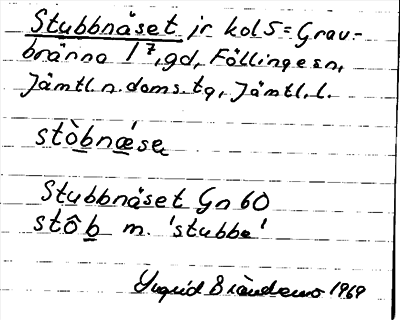 Stubbnäset jr kol 5 = Grav-
bränna 1⁷, gd, Föllinge sn,
Jämtl. n. doms. tg, Jämtl. l.
stòbnǽse
Stubbnäset Gn 60
stôb m. 'stubbe'
Ingrid 1969